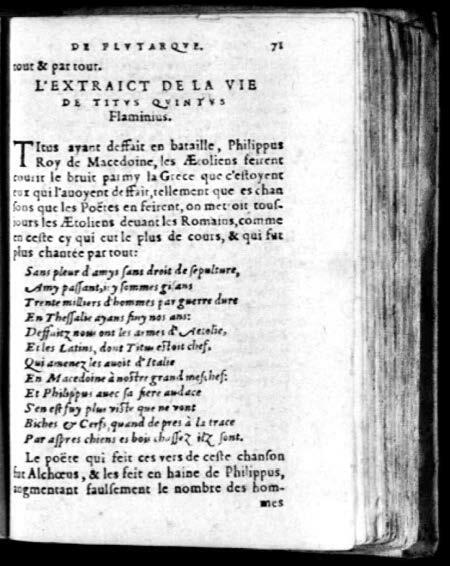 DE PLVTARQVE. 71
tout & par tout.
L'EXTRAICT DE LA VIE
DE TITVS QVINTVS
Flaminius.
TItus ayant deffait en bataille, Philippus
Roy de Macedoine, les Ætoliens feirent
courir le bruit parmy la Grece que c'estoyent
eux qui l'auoyent deffait, tellement que es chan
sons que les Poëtes en feirent, on mettoit tous-
jours les Ætoliens deuant les Romains, comme
en ceste cy qui eut le plus de cours, & qui fut
plus chantée par tout:
Sans pleur d'amys sans droit de sepulture,
Amy passant, icy sommes gisans
Trente milliers d'hommes par guerre dure
En Thessalie ayans finy nos ans:
Deffaitz nous ont les armes d'Aetolie,
Et les Latins, dont Titus estoit chef,
Qui amenez les auoit d'Italie
En Macedoine à nostre grand meschef:
Et Philippus auec sa fiere audace
S'en est fuy plus viste que ne vont
Biches & Cerfs, quand de pres à la trace
Par aspres chiens es bois chassez ilz sont.
Le poëte qui feit ces vers de ceste chanson
fut Alchœus, & les feit en haine de Philippus,
augmentant faulsement le nombre des hom-
mes